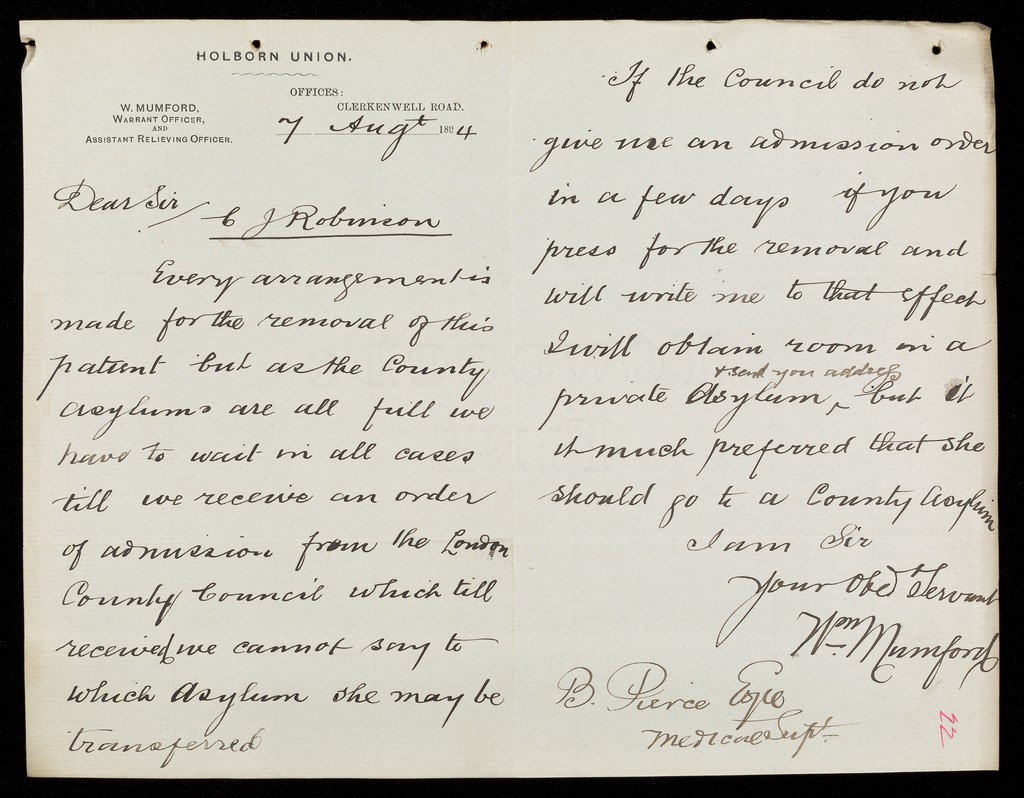 HOLBORN UNION.
OFFICES:
CLERKENWELL ROAD.
W. MUMFORD,
WARRANT OFFICER,
AND
ASSISTANT RELIEVING OFFICER.
7 Augt 1894
Dear Sir
C J Robinson
Every arrangement is
made for the removal of this
patient but as the County
Asylums are all full we
have to wait in all cases
till we receive an order
of admission from the London
County Council which till
received we cannot say to
which Asylum she may be
transferred
If the Council do not
give me an admission order
in a few days if you
press for the removal and
will write me to that effect
I will obtain room in a
& send you address
private Asylum, but it
it much preferred that she
should go to a County Asylum
I am Sir
Your Obedt Servant
Wm Mumford
B. Pierce Esqre
Medical Supt
22